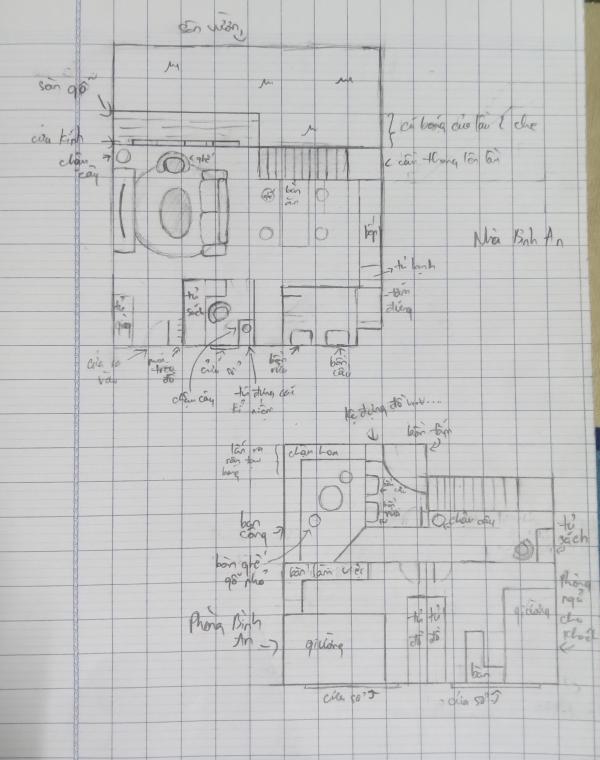 sân vườn
sàn gỗ
cửa kính
chậu
cây
ghế
bàn
ăn
bếp
có bóng của lầu 2 che
cầu thang lên lầu
Nhà Bình An
tủ lạnh
tắm
đứng
tủ
giày
tủ
sách
cửa ra
vào
móc
treo
đồ
cửa sổ
chậu cây
tủ đựng cái
kỉ niệm
bồn
rửa
bồn
cầu
kệ đựng đồ
bồn tắm
chậu hoa
ban
công
bàn ghế
gỗ nhỏ
chậu cây
tủ
sách
bàn làm việc
Phòng Bình
An
giường
tủ
đồ
tủ
đồ
bàn
giường
Phòng
ngủ
cho
khách
cửa sổ
cửa sổ